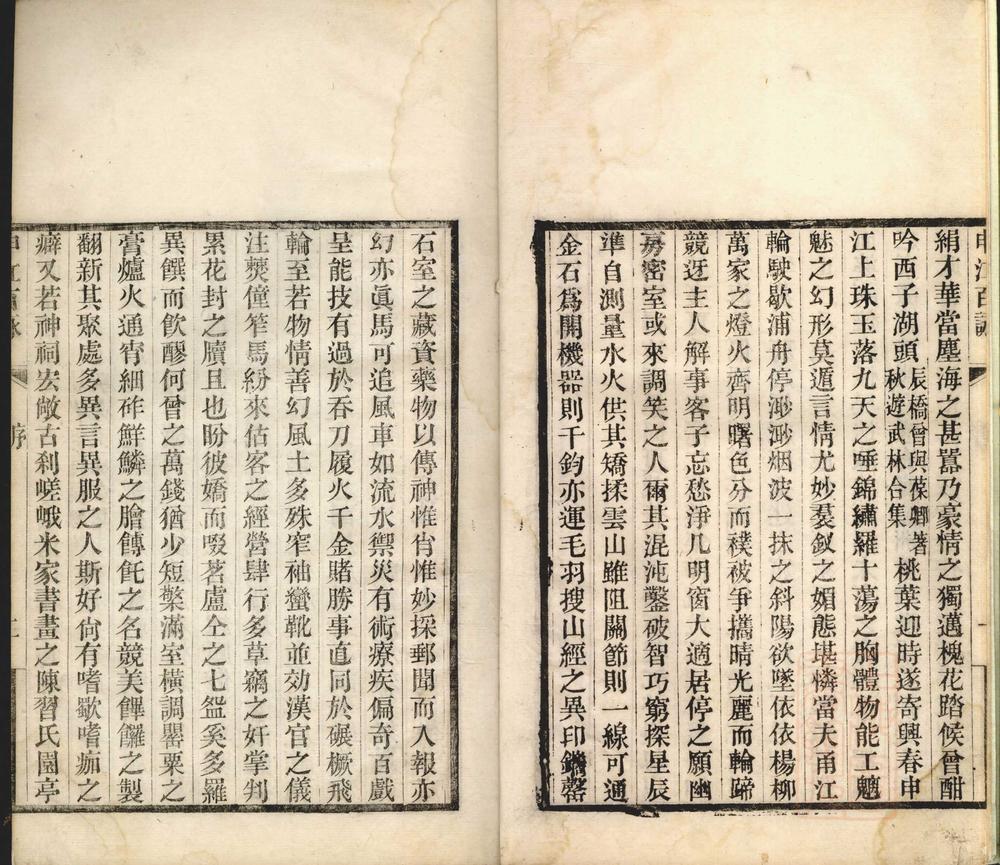 申江百詠
絹才華當塵海之甚囂乃豪情之獨邁槐花踏候曾酣
吟西子湖頭辰橋曾與葆卿著秋遊武林合集桃葉迎時遂寄興春申
江上珠玉落九天之唾錦繡羅十蕩之胸體物能工魑
魅之幻形莫遁言情尤妙裙釵之媚態堪憐當夫甬江
輪駛歇浦舟停渺渺烟波一抹之斜陽欲墜依依楊柳
萬家之燈火齊明曙色分而襆被爭攜晴光麗而輪蹄
競迓主人解事客子忘愁淨几明窗大適居停之願幽
房密室或來調笑之人爾其混沌鑿破智巧窮探星辰
準自測量水火供其矯揉雲山雖阻關節則一線可通
金石爲開機器則千鈞亦運毛羽搜山經之異印鐫罄
石室之藏資藥物以傳神惟肖惟妙採郵聞而入報亦
幻亦眞馬可追風車如流水禦災有術療疾偏奇百戲
呈能技有過於吞刀履火千金賭勝事直同於碾橛飛
輪至若物情善幻風土多殊窄袖蠻靴並効漢官之儀
注僰僮笮馬紛來估客之經營肆行多草竊之奸掌判
累花封之牘且也盼彼嬌而啜茗盧仝之七盌奚多羅
異饌而飲醪何曾之萬錢猶少短檠滿室橫調罌粟之
膏爐火通宵細砟鮮鱗之膾餺飥之名競美饆饠之製
翻新其聚處多異言異服之人斯好尙有嗜歠嗜痂之
癖又若神祠宏敞古刹嵯峨米家書畫之陳習氏園亭
序
二